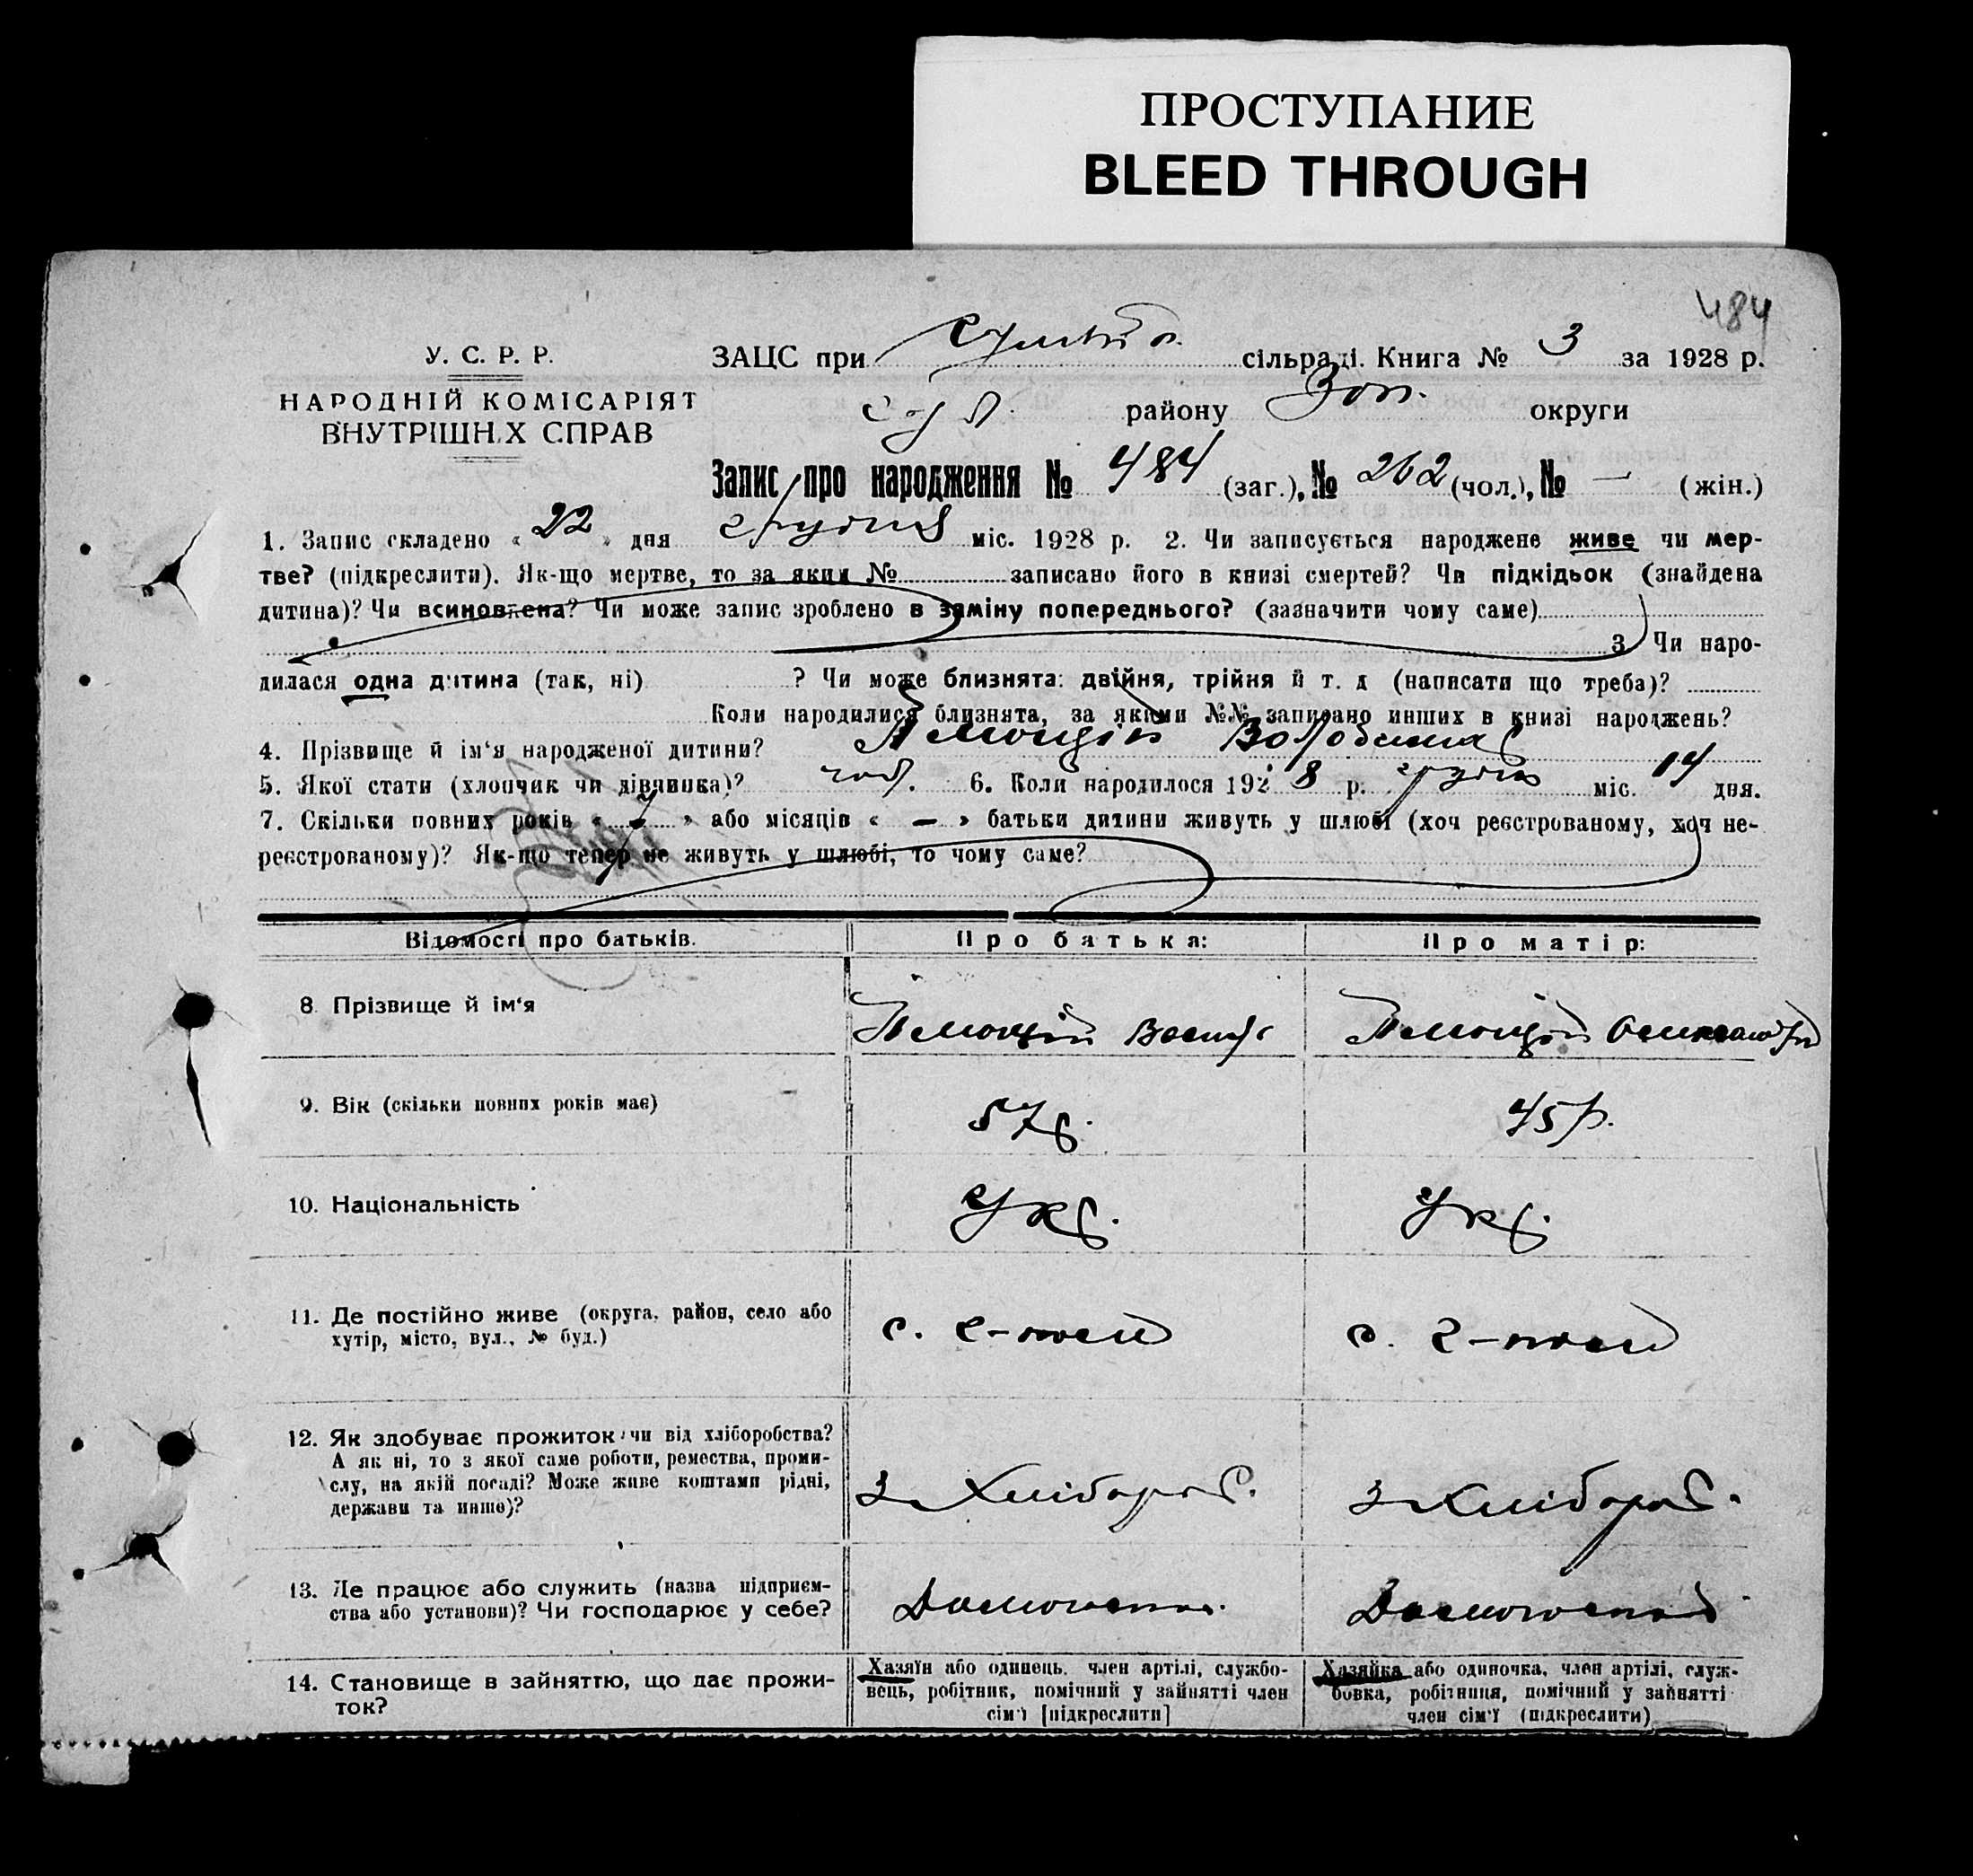 ПРОСТУПАНИЕ
BLEED THROUGH
484
У. С. Р. Р.
НАРОДНІЙ КОМІСАРІЯТ
ВНУТРІШНІХ СПРАВ
ЗАЦС при сільраді. Книга № 3 за 1928 р.
району Зол. округи
Запис про народження № 484 (заг.), № 262 (чол.), № — (жін.)
1. Запис складено « 22 » дня грудня міс. 1928 р. 2. Чи записується народжене живе чи мер-
тве? (підкреслити). Як-що мертве, то за яким № записано його в книзі смертей? Чи підкідьок (знайдена
дитина)? Чи всиновлена? Чи може запис зроблено в заміну попереднього? (зазначити чому саме)
3 Чи наро-
дилася одна дитина (так, ні) ? Чи може близнята: двійня, трійня й т. д (написати що треба)?
Коли народилися близнята, за якими №№ записано инших в книзі народжень?
4. Прізвище й ім'я народженої дитини?
5. Якої стати (хлопчик чи дівчинка)? чол. 6. Коли народилося 1928 р. грудня міс. 14 дня.
7. Скільки повних років « » або місяців « — » батьки дитини живуть у шлюбі (хоч реєстрованому, хоч не-
реєстрованому)? Як-що тепер не живуть у шлюбі, то чому саме?
Відомості про батьків. Про батька: Про матір:
8. Прізвище й ім'я
9. Вік (скільки повних років має) 57р. 45р.
10. Національність Укр. Укр.
11. Де постійно живе (округа, район, село або
хутір, місто, вул., № буд.)
12. Як здобуває прожиток: чи від хліборобства?
А як ні, то з якої саме роботи, ремества, проми-
слу, на якій посаді? Може живе коштами рідні,
держави та инше)?
З Хлібороб. З Хлібороб.
13. Де працює або служить (назва підприєм-
ства або установи)? Чи господарює у себе?
14. Становище в зайняттю, що дає прожи-
ток?
Хазяїн або одинець, член артілі, службо-
вець, робітник, помічний у зайнятті член
сім'ї [підкреслити]
Хазяйка або одиночка, член артілі, служ-
бовка, робітниця, помічний у зайнятті
член сім'ї (підкреслити)